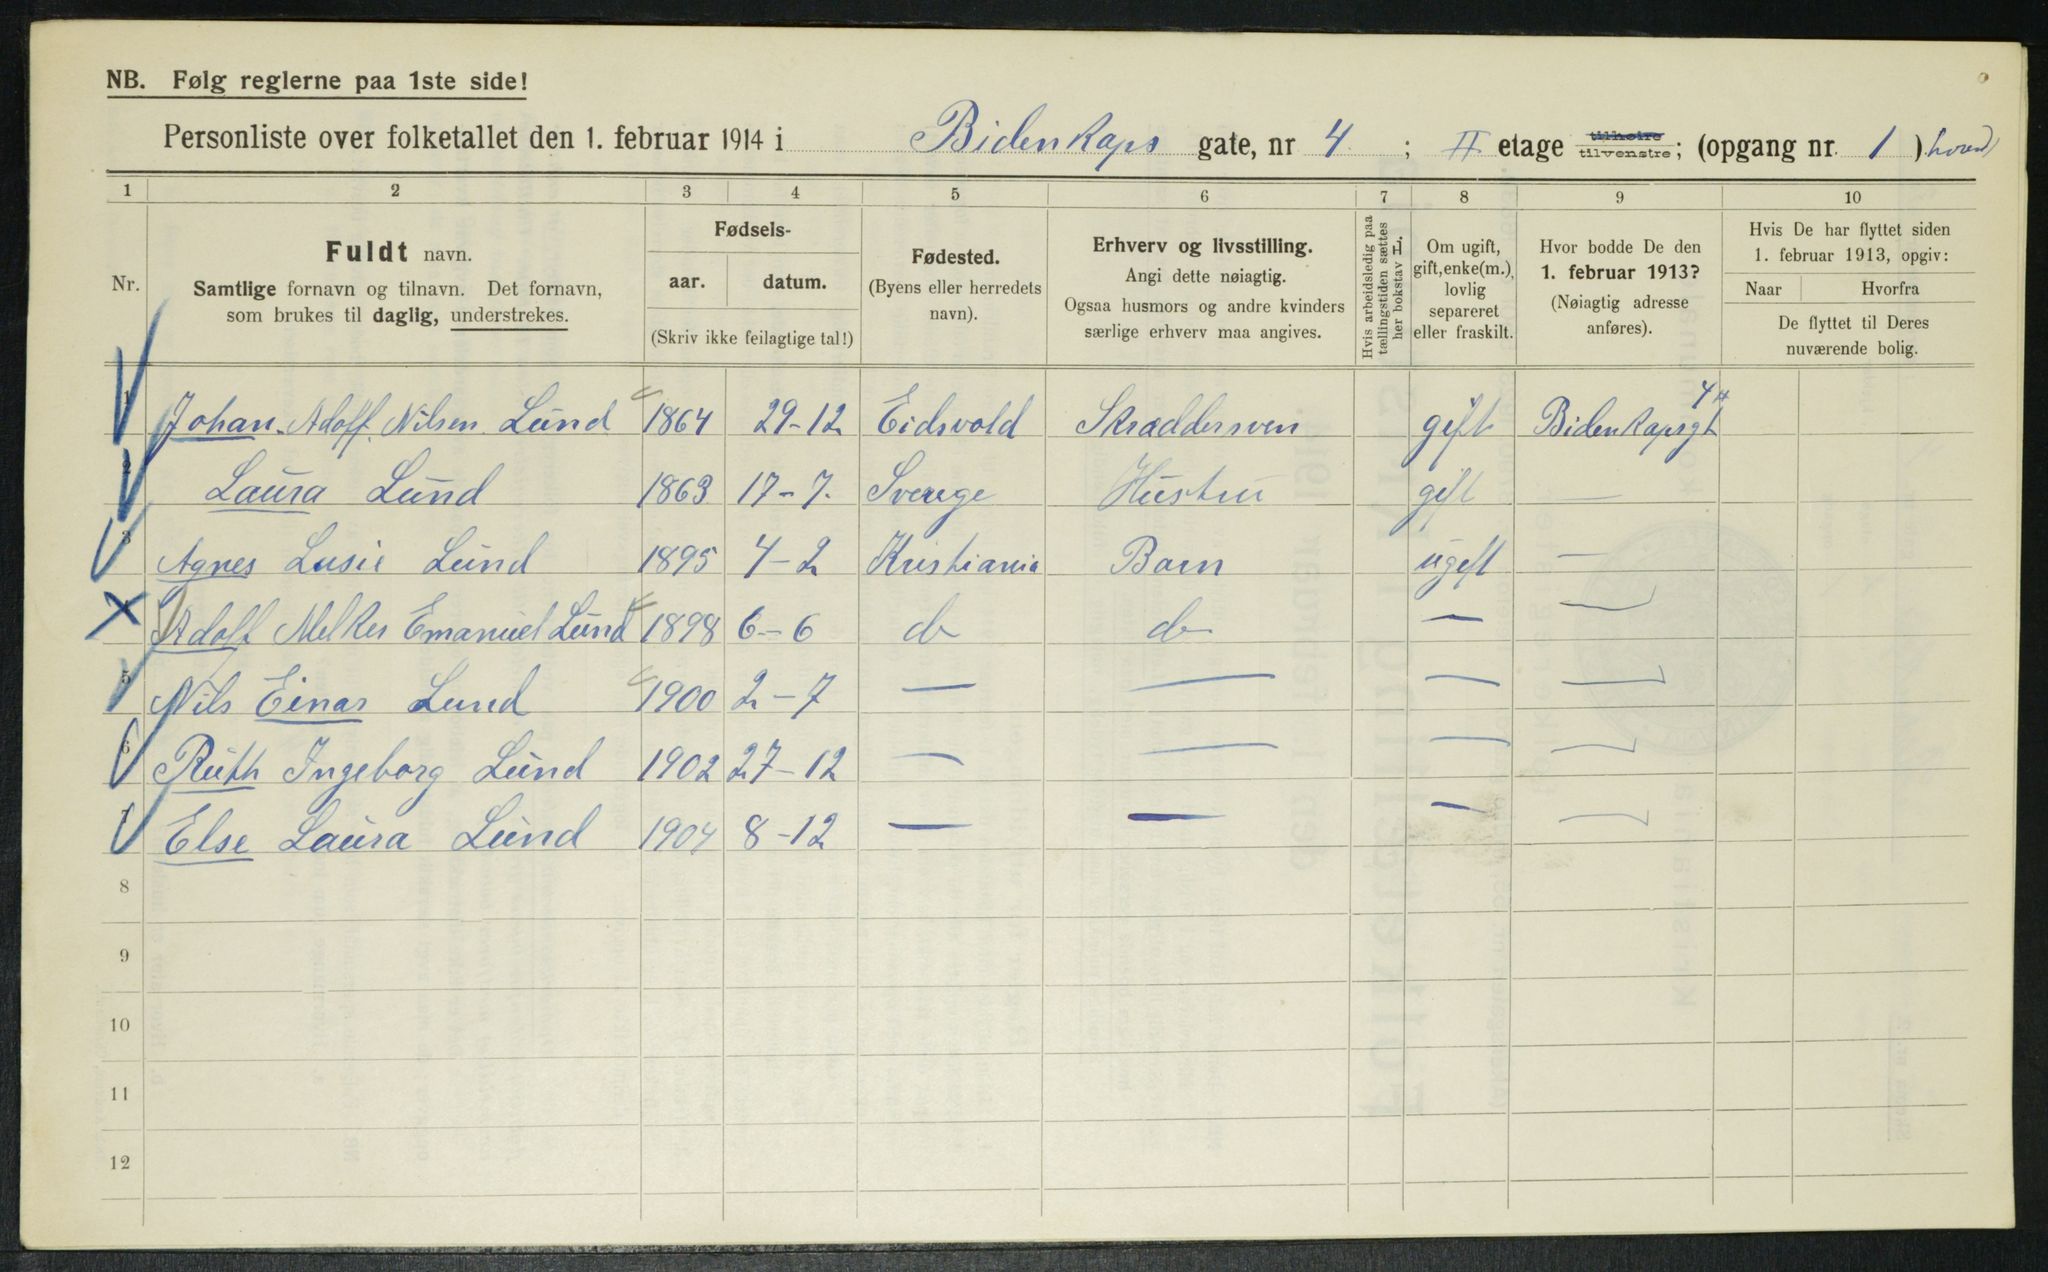 NB. Følg reglerne paa 1ste side!
Personliste over folketallet den 1. februar 1914 i Bidenkaps gate, nr 4 ; II etage tilhøire tilvenstre; (opgang nr. 1)
1 2 3 4 5 6 7 8 9 10
Nr.
Fuldt navn.
Samtlige fornavn og tilnavn. Det fornavn,
som brukes til daglig, understrekes.
Fødsels-
aar. datum.
(Skriv ikke feilagtige tal!)
Fødested.
(Byens eller herredets
navn).
Erhverv og livsstilling.
Angi dette nøiagtig.
Ogsaa husmors og andre kvinders
særlige erhverv maa angives.
Hvis arbeidsledig paa
tællingstiden sættes
her bokstav L.
Om ugift,
gift, enke(m.),
lovlig
separeret
eller fraskilt.
Hvor bodde De den
1. februar 1913?
(Nøiagtig adresse
anføres).
Hvis De har flyttet siden
1. februar 1913, opgiv:
Naar Hvorfra
De flyttet til Deres
nuværende bolig.
1 Johan Adolf Nilsen Lund 1864 29-12 Eidsvold Skræddersven gift Bidenkapsgt 4 II
2 Laura Lund 1863 17-7. Sverige Hustru gift —
3 Agnes Lusie Lund 1895 4-2 Kristiania Barn ugift —
4 Adolf Melker Emanuel Lund 1898 6-6 do do — —
5 Nils Einar Lund 1900 2-7 — — — —
6 Ruth Ingeborg Lund 1902 27-12 — — — —
7 Else Laura Lund 1904 8-12 — — — —
8
9
10
11
12